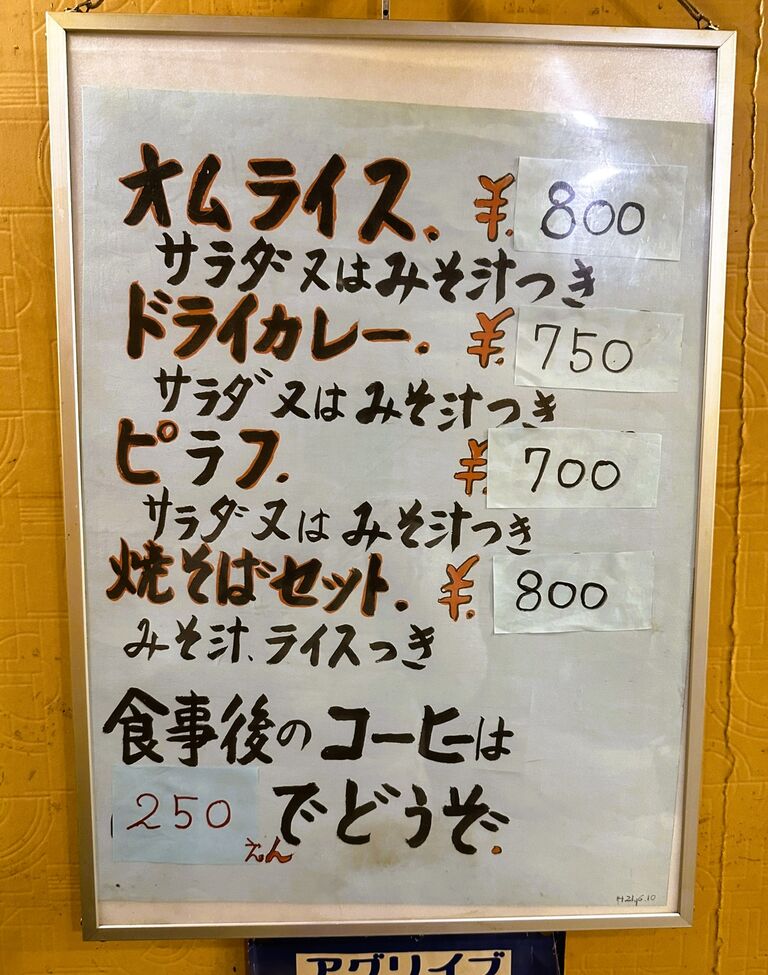 オムライス. ¥ 800
サラダ又はみそ汁つき
ドライカレー. ¥ 750
サラダ又はみそ汁つき
ピラフ. ¥ 700
サラダ又はみそ汁つき
焼そばセット. ¥ 800
みそ汁、ライスつき
食事後のコーヒーは
250えんでどうぞ.
アグリイブ